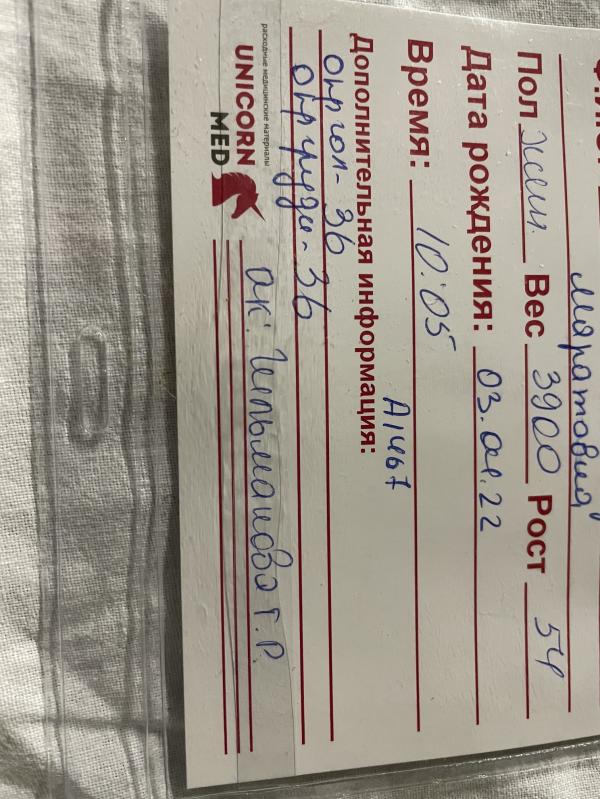 Маратовна
Пол жен. Вес 3900 Рост 54
Дата рождения: 03.01.22
Время: 10:05
Дополнительная информация:
окр гол - 36
окр груди - 36
ак:
расходные медицинские материалы
UNICORN
MED